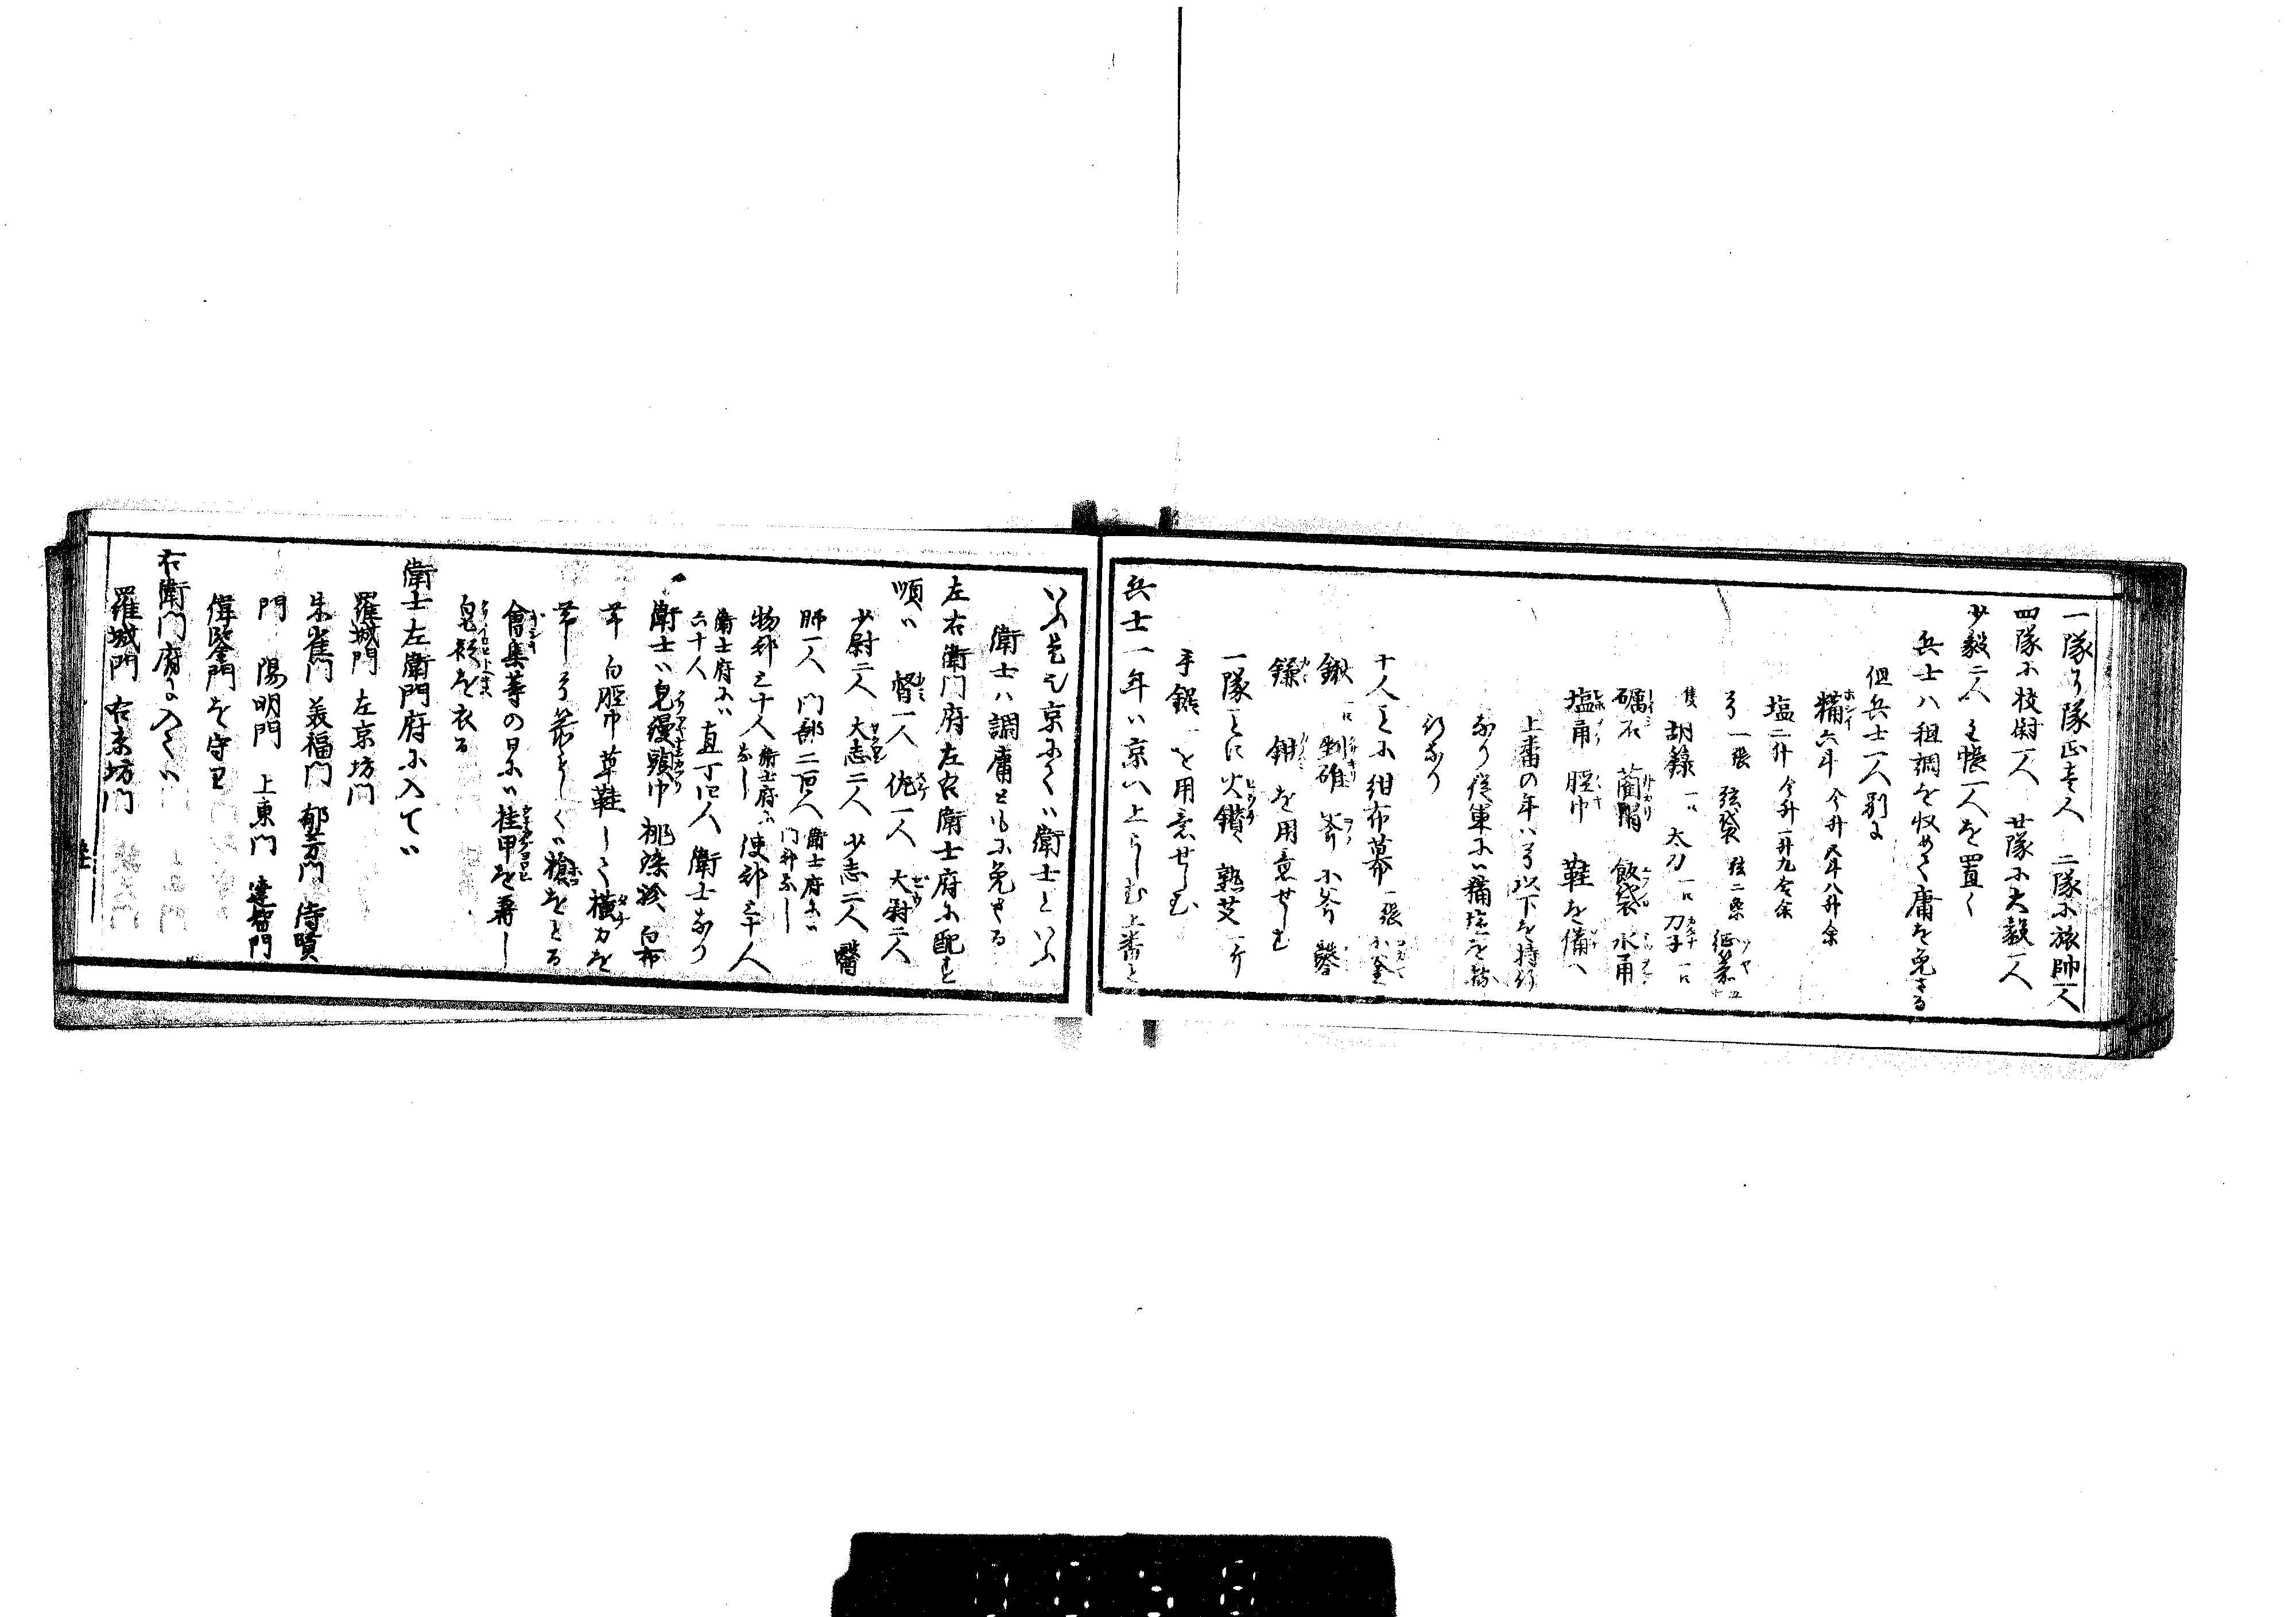 一隊に隊正壱人　二隊に旅帥一人
四隊に校尉一人　廿隊に大毅一人
少毅二人　主帳一人を置く
兵士ハ租調を収めて庸を免さる
但兵士一人別に
糒六斗
塩二升　今升一升九合余
弓一張　弦袋　弦二条　征箭五十
隻　胡籙一口　太刀一口　刀子一口
礪石　藺帽　飯袋　水甬
塩甬　脛巾　鞋を備へ
上番の年ハ弓以下を持
なり　従軍にハ糒塩を
行なり
十人ことに紺布幕一張　小釜
鍬一口　剉碓　斧　小斧　鑿
鎌　鉗を用意せしむ
一隊ことに火鑽　熟艾一斤
手鋸一を用意せしむ
兵士一年ハ京ハ上らしむ上番と
いふ是也京にてハ衛士といふ
衛士ハ調庸ともに免さる
左右衛門府左右衛士府に配す
順ハ　督一人　佐一人　大尉二人
少尉二人　大志二人　少志二人　醫
師一人　門部二百人　衛士府にハ門部なし
物部三十人　衛士府になし　使部三十人
衛士府にハ六十人　直丁四人　衛士なり
衛士ハ皀縵頭巾　桃染衫　白布
帯　白脛巾　草鞋して横刀を
帯し弓箭もしくハ槍をとる
會集等の日にハ挂甲を著し
皀衫を衣る
衛士左衛門府に入てハ
羅城門　左京坊門
朱雀門　美福門　郁芳門　待賢
門　陽明門　上東門　達智門
偉鑒門を守り
右衛門府に入てハ
羅城門　右京坊門